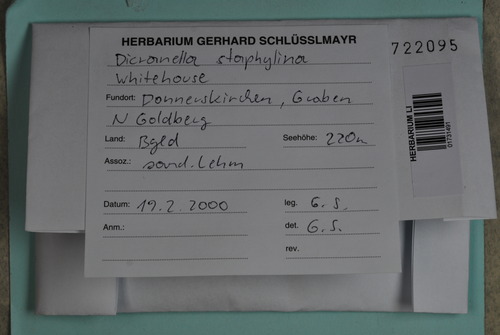 HERBARIUM GERHARD SCHLÜSSLMAYR
722095
Dicranella staphylina
Whitehouse
Fundort: Donnerskirchen, Graben
N Goldberg
Land: Bgld Seehöhe: 220m
Assoz.: sand. Lehm
Datum: 19.2.2000 leg. G.S.
Anm.: det. G.S.
rev.
HERBARIUM LI
01731491